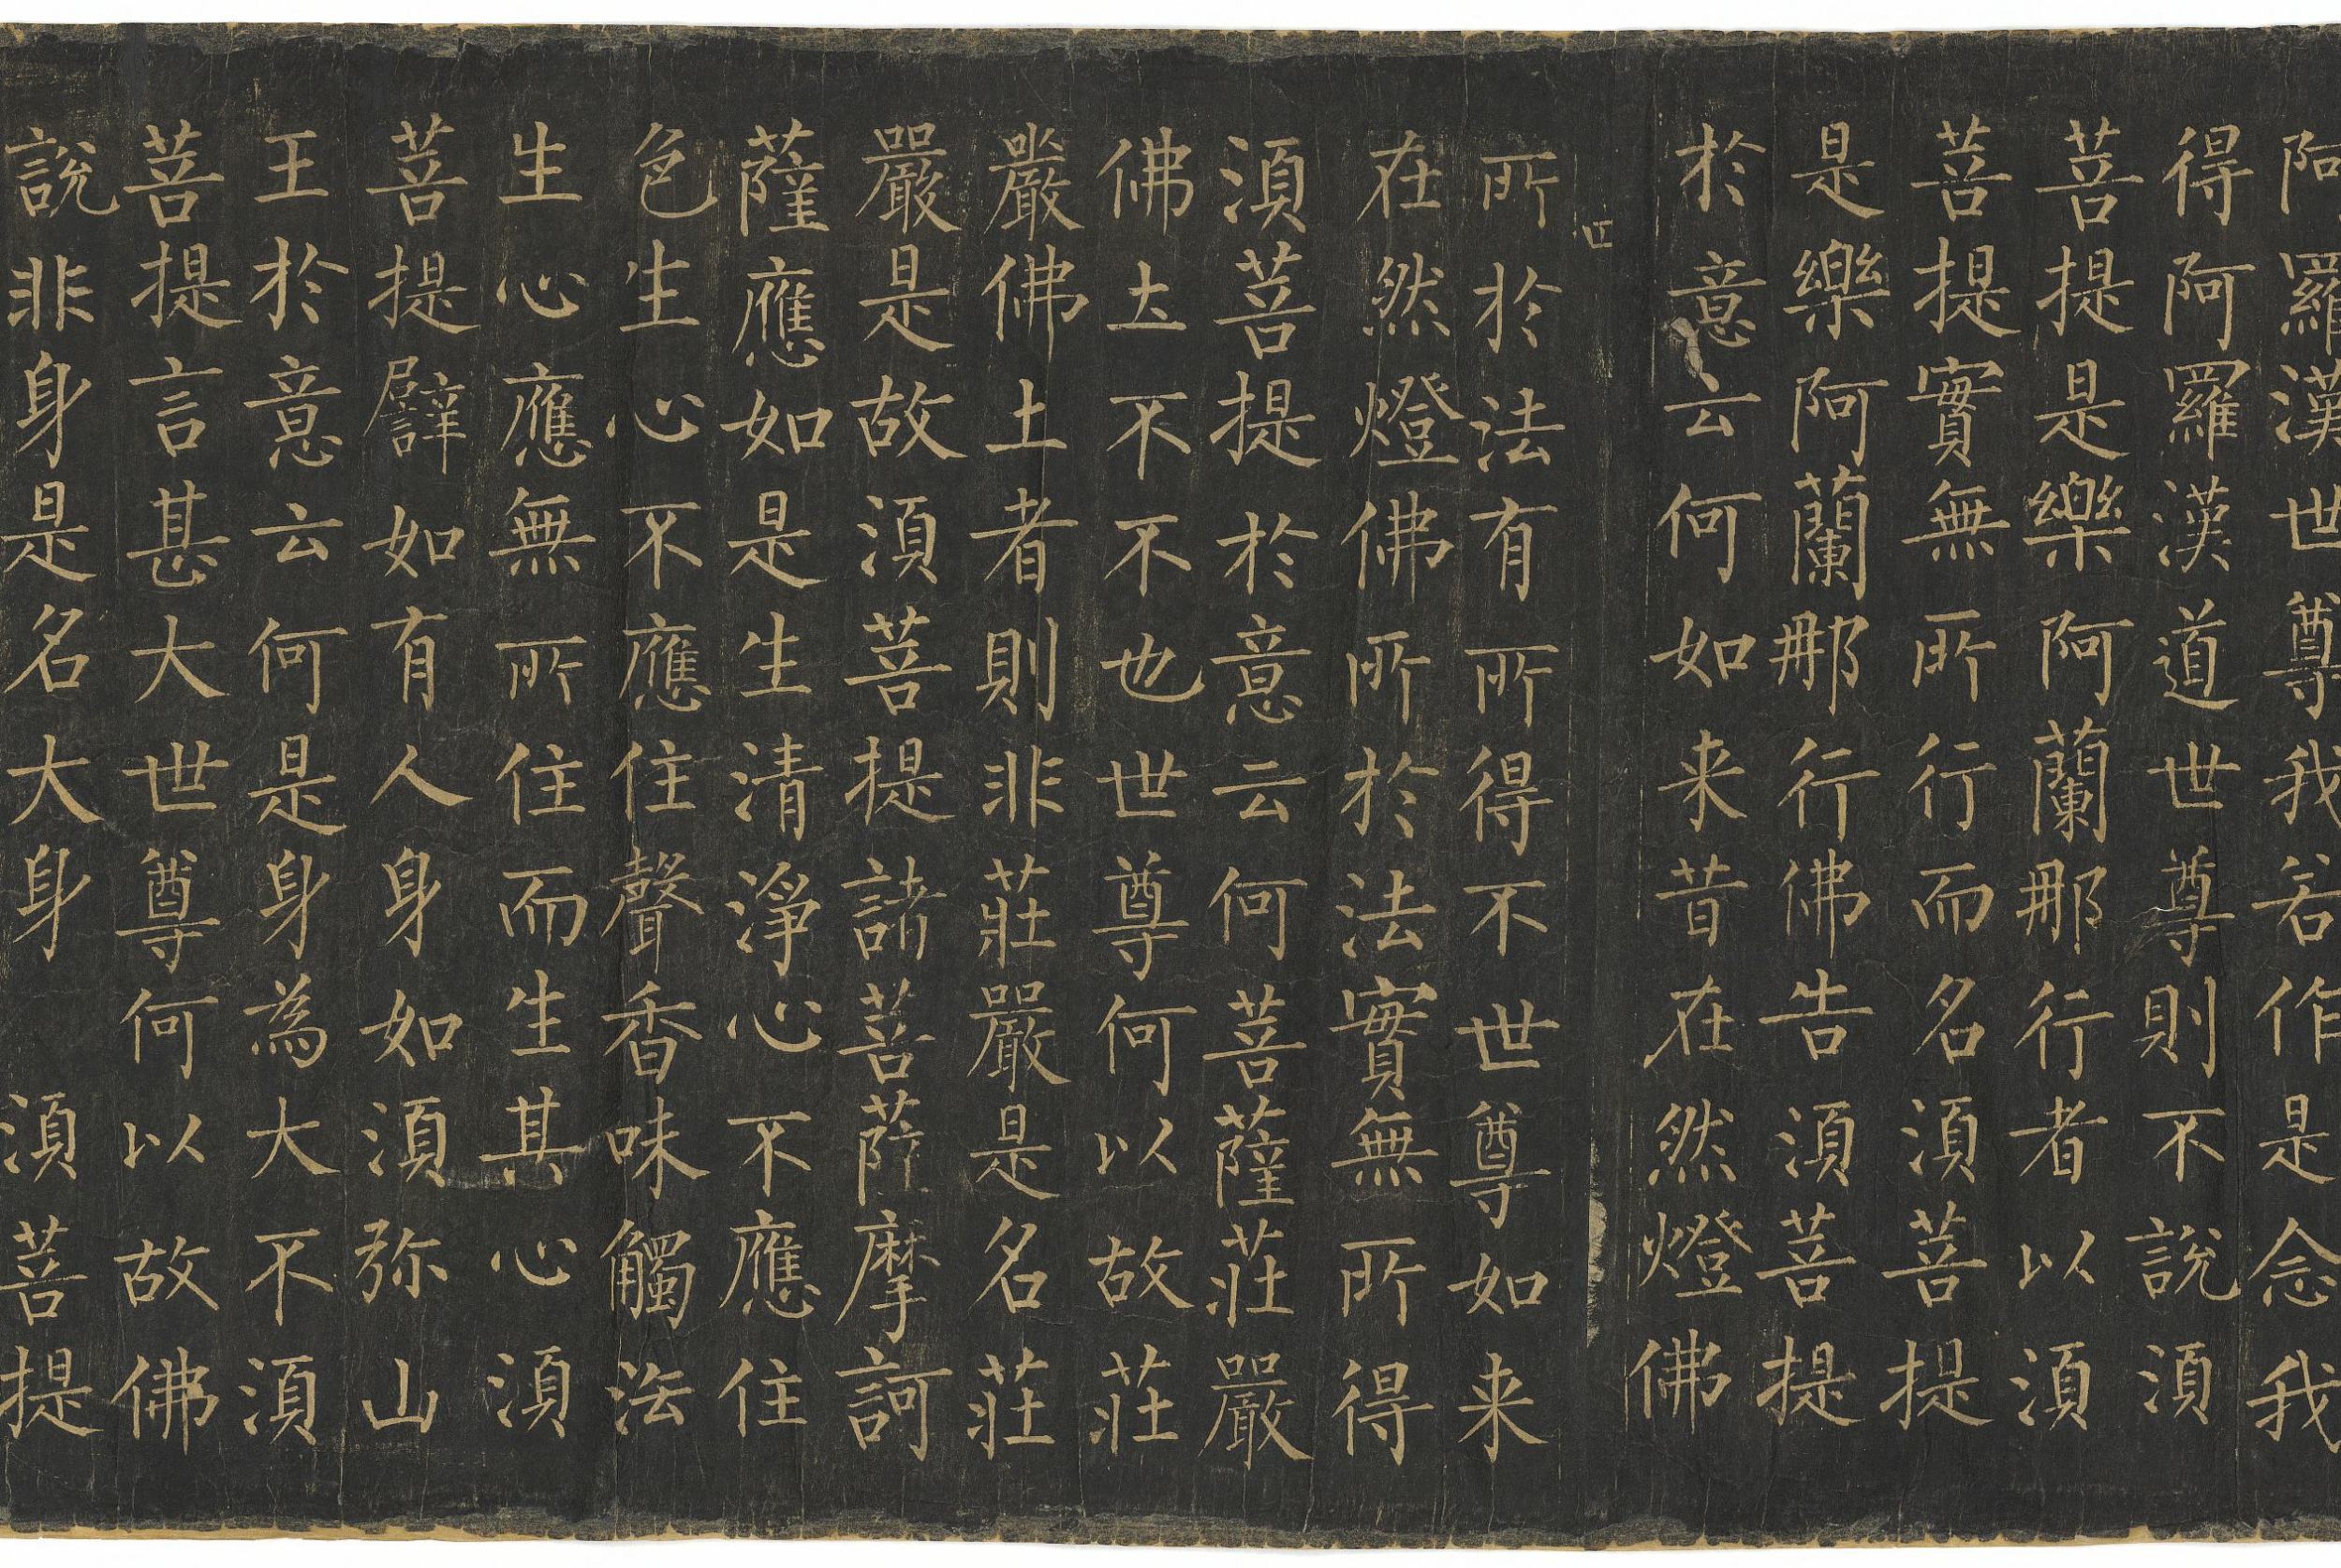 阿羅漢世尊我若作是念我
得阿羅漢道世尊則不說須
菩提是樂阿蘭那行者以須
菩提實無所行而名須菩提
是樂阿蘭那行佛告須菩提
於意云何如来昔在然燈佛
所於法有所得不世尊如来
在然燈佛所於法實無所得
須菩提於意云何菩薩莊嚴
佛土不不也世尊何以故莊
嚴佛土者則非莊嚴是名莊
嚴是故須菩提諸菩薩摩訶
薩應如是生清淨心不應住
色生心不應住聲香味觸法
生心應無所住而生其心須
菩提譬如有人身如須弥山
王於意云何是身為大不須
菩提言甚大世尊何以故佛
說非身是名大身　須菩提